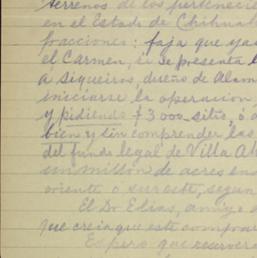 terrenos de los pertenecie
en el Estado de Chihuah
fracciones: faja que ya
el Carmen, si se presenta
a Siqueiros, dueño de Alam
iniciarse la operacion
y pidiendo $3000 sitio, ó
bien y sin comprender las
del fundo legal de Villa
un millon de acres
oriente o sureste, segun
El Dr Elias, amigo
que creia que este comprar
Espero que reservera